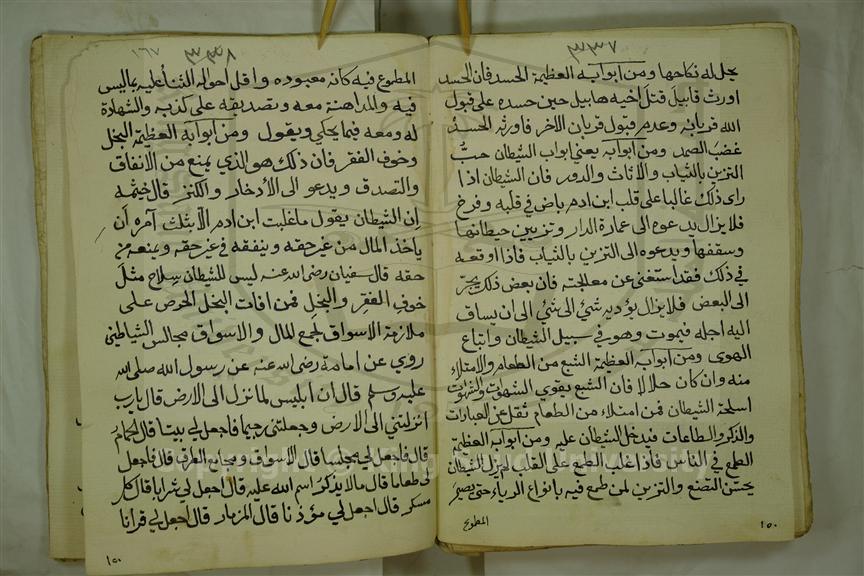 ٣٣٧
يحل له نكاحها ومن ابوابه العظيمة الحسد فان الحسد
اورث قابيل قتل اخيه هابيل حين حسده على قبول
الله قربانه وعدم قبول قربان الاخر فاورثه الحسد
غضب الصمد ومن ابوابه يعني ابواب الشيطان حب
التزين بالثياب والاثاث والدور فان الشيطان اذا
راى ذلك غالبا على قلب ابن ادم باض في قلبه وفرخ
فلا يزال يدعوه الى عمارة الدار وتزيين حيطانها
وسقفها ويدعوه الى التزين بالثياب فاذا اوقعه
في ذلك فقد استغنى عن معالجته فان بعض ذلك يجر
الى البعض فلا يزال يؤديه شئ الى شئ الى ان يساق
اليه اجله فيموت وهو في سبيل الشيطان واتباع
الهوى ومن ابوابه العظيمة الشبع من الطعام والامتلاء
منه وان كان حلالا فان الشبع يقوي الشهوات والشهوات
اسلحة الشيطان فمن امتلاء من الطعام ثقل عن العبادات
والذكر والطاعات فيدخل الشيطان عليه ومن ابوابه العظيمة
الطمع في الناس فاذا غلب الطمع على القلب لم يزل الشيطان
يحسن التصنع والتزين لمن طمع فيه بانواع الرياء حتى يصير
المطموع
١٥٠
٣٣٨
١٦٧
المطموع فيه كانه معبوده واقل احواله الثنا عليه بما ليس
فيه والمداهنة معه وتصديقه على كذبه والشهادة
له ومعه فيما يحكي ويقول ومن ابوابه العظيمة البخل
وخوف الفقر فان ذلك هو الذي يمنع من الانفاق
والتصدق ويدعو الى الادخار والكنز قال خيثمه
ان الشيطان يقول ما غلبت ابن ادم الا بثلث آمره ان
ياخذ المال من غير حقه وينفقه في غير حقه ويمنعه من
حقه قال سفيان رضى الله عنه ليس للشيطان سلاح مثل
خوف الفقر والبخل فمن افات البخل الحرص على
ملازمة الاسواق لجمع المال والاسواق مجالس الشياطين
روي عن امامة رضى الله عنه عن رسول الله صلى الله
عليه وسلم قال ان ابليس لما نزل الى الارض قال يارب
انزلتني الى الارض وجعلتني رجيما فاجعل لي بيتا قال الحمام
قال فاجعل لي مجلسا قال الاسواق ومجامع الطرق قال فاجعل
لي طعاما قال ما لا يذكر اسم الله عليه قال اجعل لي شرابا قال كل
مسكر قال اجعل لي مؤذنا قال المزمار قال اجعل لي قرانا
١٥٠